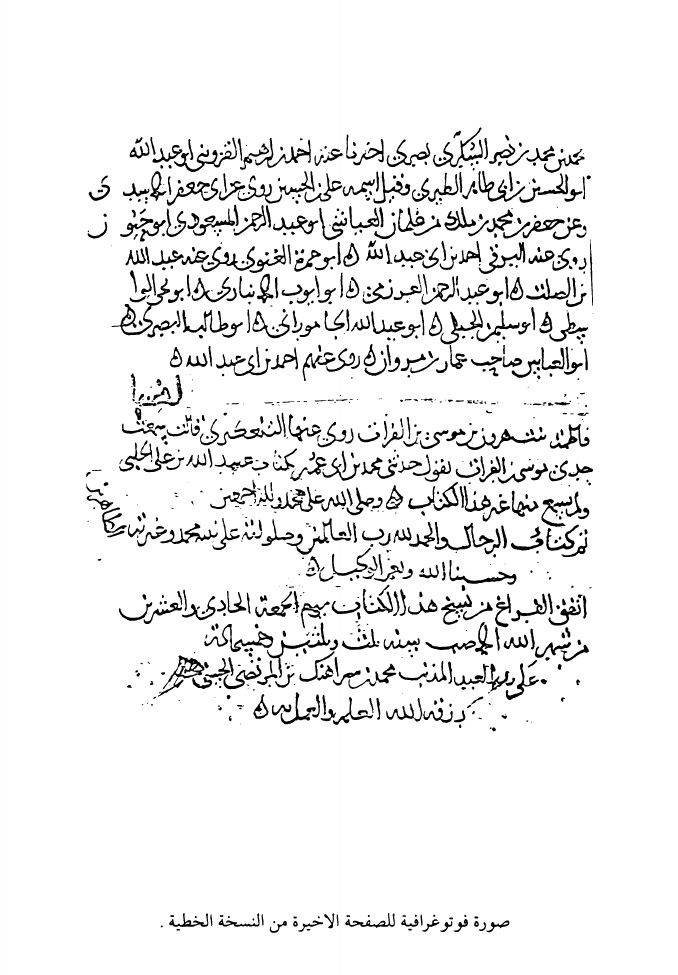 محمد بن محمد بن نصر السكري بصري اخبرنا عنه احمد بن ابرهيم القزويني ابو عبد الله
ابو الحسين بن ابي طاهر الطبري وقيل اسمه علي بن الحسين روى عن ابي جعفر الاسدي
وعن جعفر بن محمد بن ملك من غلمان العياشي ابو عبد الرحمن المسعودي ابو
روى عنه البرقي احمد بن ابي عبد الله ابو حمزة الغنوي روى عنه عبد الله
بن الصلت ابو عبد الرحمن العرزمي ابو ايوب الانباري ابو يحيى الوا
سطي ابو سليمن الجبلي ابو عبد الله الجاموراني ابو طالب البصري
ابو العباس صاحب عمار بن مروان روى عنهم احمد بن ابي عبد الله
اخبرنا
فاطمة بنت هرون بن موسى بن الفرات روى عنها التلعكبري قالت سمعت
جدي موسى بن الفرات يقول حدثني محمد بن ابي عمير بكتاب عبيد الله بن علي الحلبي
ولم يسمع منها غير هذا الكتاب وصلى الله على محمد وآله اجمعين
تم كتاب الرجال والحمد لله رب العالمين وصلوته على نبيه محمد وعترته الطاهرين
وحسبنا الله ونعم الوكيل
اتفق الفراغ من نسخ هذا الكتاب يوم الجمعة الحادي والعشرين
من شهر الله الاصب سنة ثلث وثلثين وخمسمائة
على يد العبد المذنب محمد بن سراهنك بن المرتضى الحسني
رزقه الله العلم والعمل به
صورة فوتوغرافية للصفحة الاخيرة من النسخة الخطية .